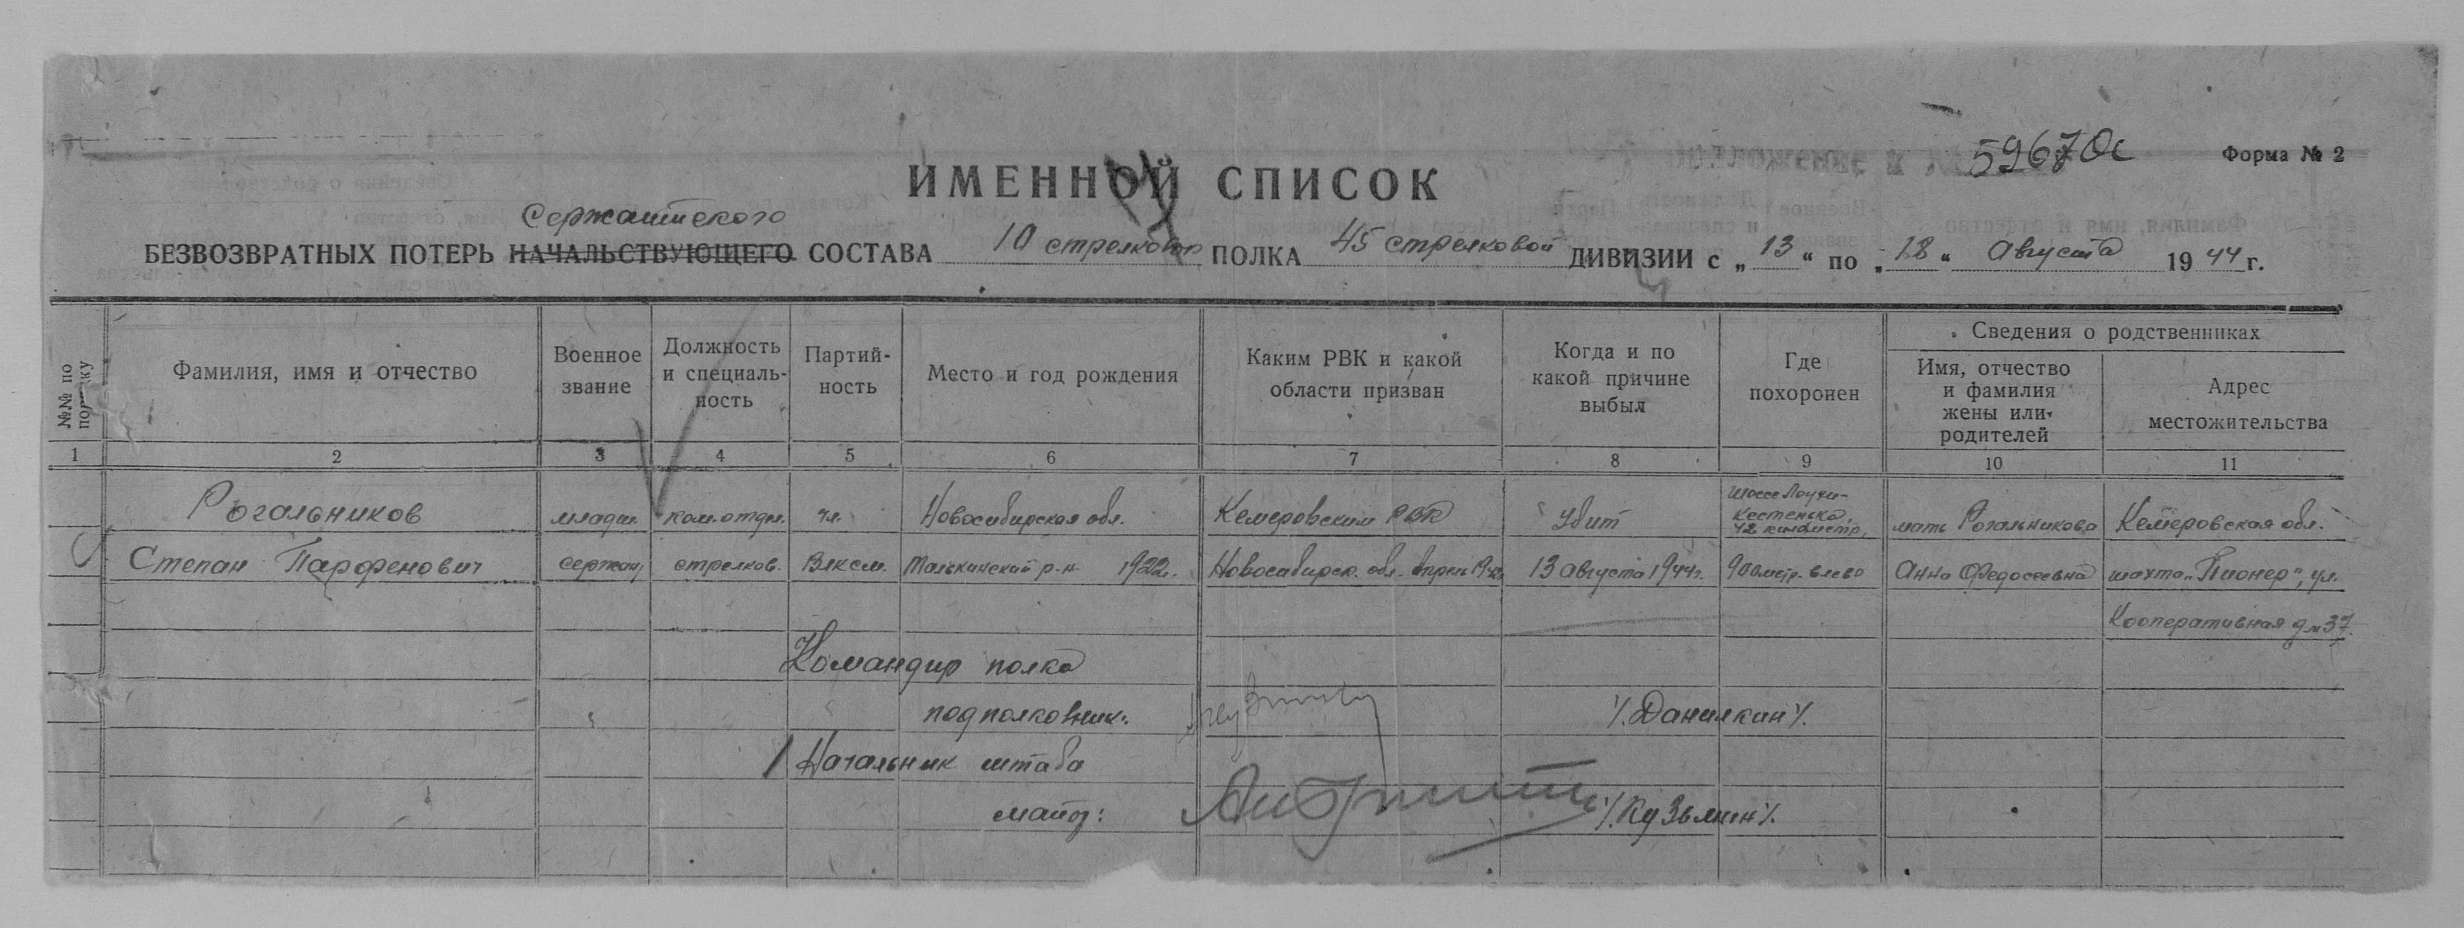 59670с
Форма № 2
ИМЕННОЙ СПИСОК
Сержантского
БЕЗВОЗВРАТНЫХ ПОТЕРЬ НАЧАЛЬСТВУЮЩЕГО СОСТАВА 10 стрелковр ПОЛКА 45 стрелковой ДИВИЗИИ с „13“ по „18“ Августа 1944 г.
№№ по порядку
Фамилия, имя и отчество
Военное звание
Должность и специальность
Партийность
Место и год рождения
Каким РВК и какой области призван
Когда и по какой причине выбыл
Где похоронен
Сведения о родственниках
Имя, отчество и фамилия жены или родителей
Адрес местожительства
1 2 3 4 5 6 7 8 9 10 11
Рогальников младш. ком.отдел. чл. Новосибирская обл. Кемеровским РВК Убит шоссе Лоухи-Кестенька, 42 километр, мать Рогальникова Кемеровская обл.
Степан Парфенович сержант стрелков. Влксм. р-н 1922г. Новосибирск. обл. Апрель 13 Августа 1944г. 900 метр. влево Анна Федосеевна шахта „Пионер“, ул.
Кооперативная д № 37.
Командир полка
подполковник: /.Данилкин/.
Начальник штаба
майор: /.Кузьмин/.